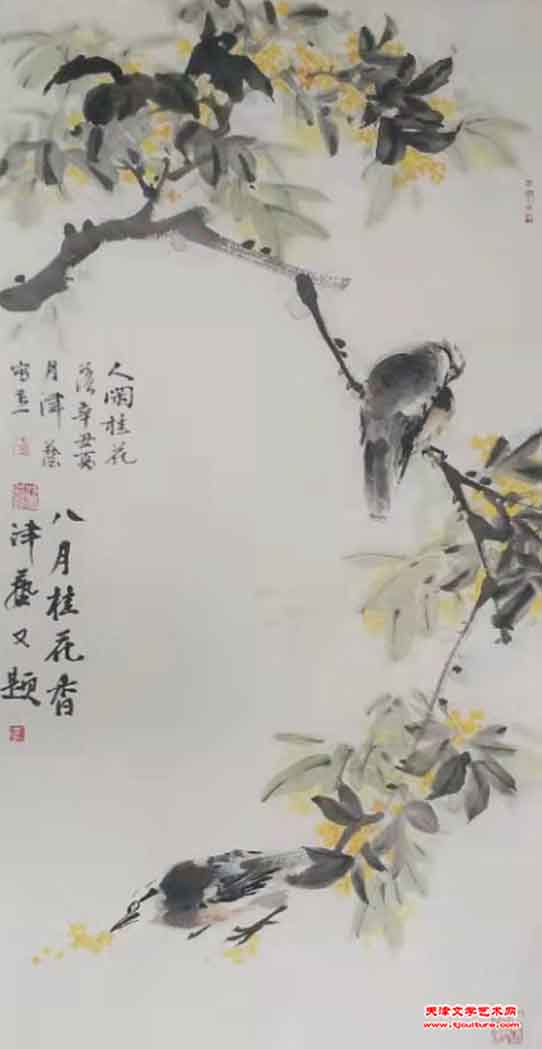 人闲桂花
落辛丑荷
月津艺
写意
八月桂花香
津艺又题
天津文学艺术网
www.tjculture.com